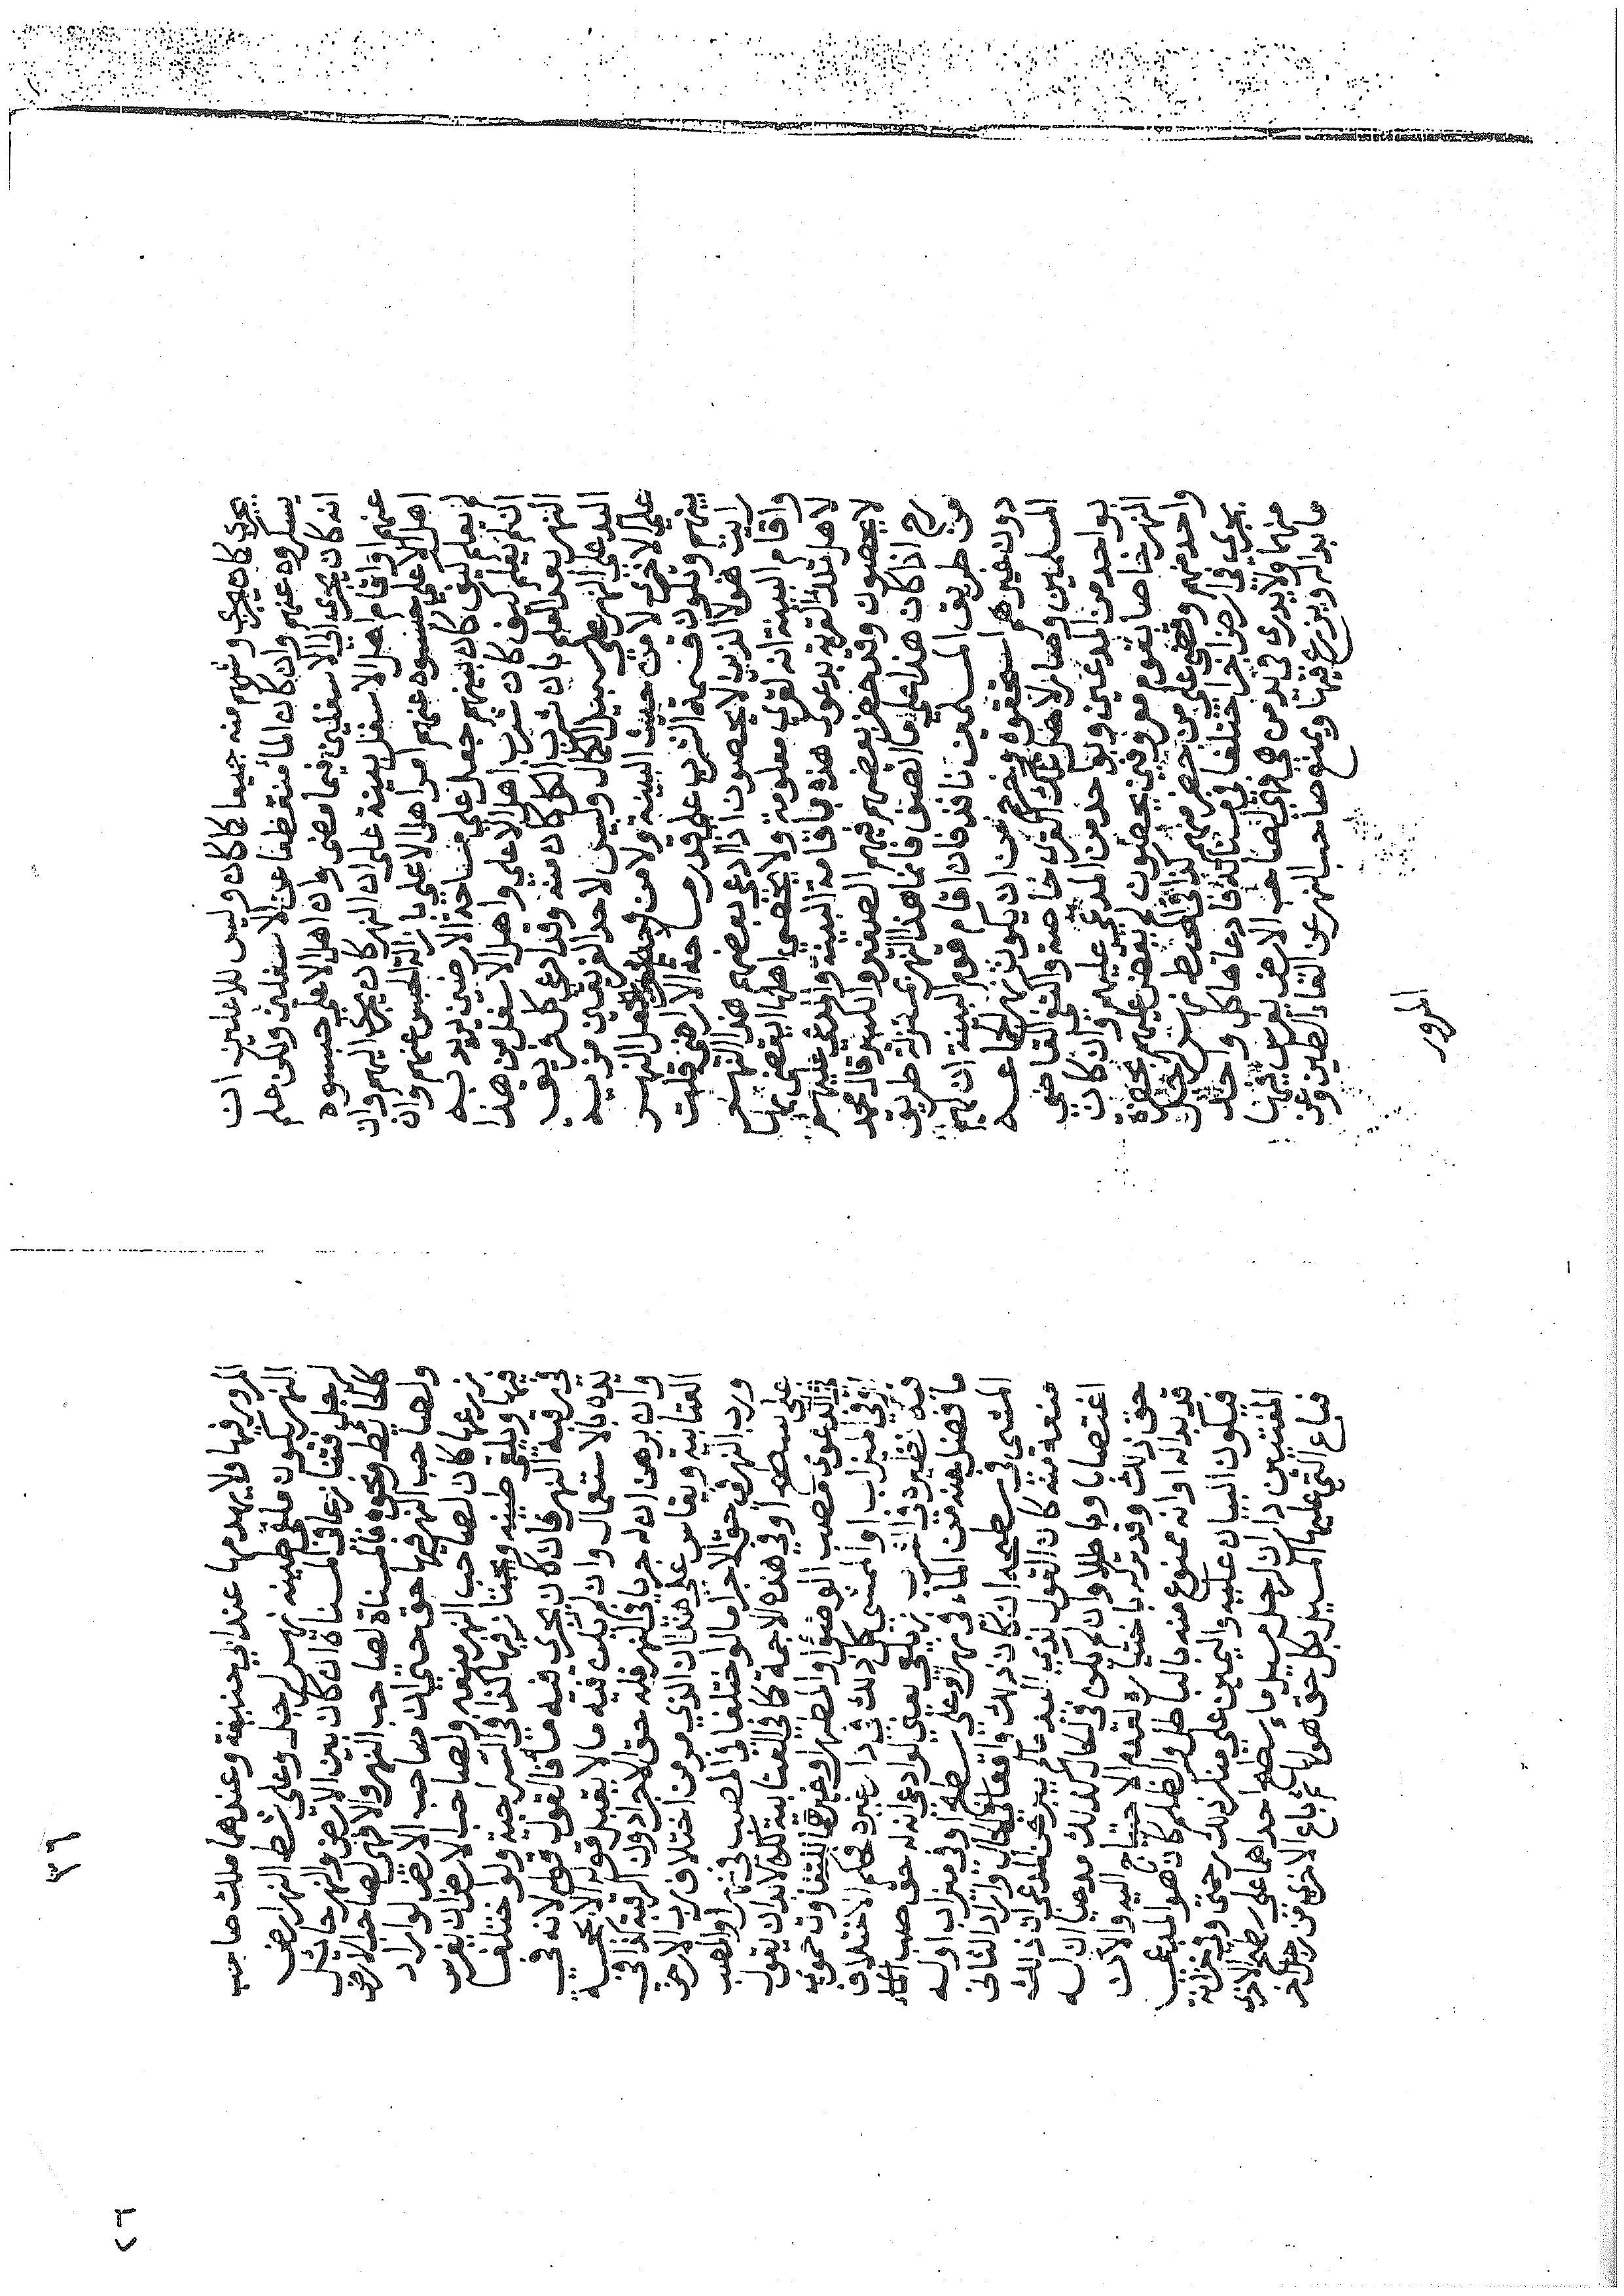 يجري كما كان يجري وشربهم منه جميعا كما كان وليس للاعلين ان
يسكروه عنهم وان كان الماء منقطعا عن الاسفلين ولكن علم
انه كان يجري الى الاسفلين فيما مضى وان اهل الاعلى حبسوه
عنهم او اقام اهل الاسفل بينة على ان النهر كان يجري اليهم وان
اهل الاعلى حبسوه عنهم امر اهل الاعلى بازالة الحبس عنهم وان
لم يعلم كيف كان بينهم جعل على مساحة الارضين يريد به
ان لم يعلم كيف كان شرب اهل الاعلى واهل الاسفل من هذا
النهر بعد العلم بان شرب الكل كان منه وقد ادعى كل فريق
اليد على النهر على سبيل الكمال وليس لاحد الفريقين مزية
على الاخرى لا من حيث البينة ولا من جعل النهر
بينهم وتكون قسمة الشرب على قدر مساحة الاراضي قلت
ارايت هولا الذين لا يحصون اذا ادعى بعضهم هذا النهر
واقام البينة انه لقرى معلومة ولا يحصى اهلها ايقضى بها
لاهل تلك القرية بدعوى هذه باقامة البينة والمدعى عليهم
لا يحصون وقد حضر بعضهم فيهم الصغير والكبير قال محمد
رح اذا كان هذا على ما اصف فانما هذا النهر بمنزلة طريق
من طريق المسلمين نافذ فان اقام قوم البينة ان لهم
دون غيرهم استحقوه وخرج من ان يكون نهرا لجماعة
المسلمين وصار لاهل تلك القرى خاصة واكتفى القاضي
بواحد من المدعين وبواحد من المدعى عليهم وان كان
النهر خاصا لقوم معروفين يحصون لم يقض عليهم بحضرة
واحد منهم وقضى على من حضر منهم كذا في المحيط نهر لرجل
يجري في ارض اخر اختلفا في مسناته فادعاها كل واحد
منهما ولا يدرى في يد من هي فهي لصاحب الارض يغرس فيها
ما بدا له ويزرع فيها ويمنع صاحب النهر عن القاء الطين وعن
المرور
٣٦
المرور فيها ولا يهدمها عند ابي حنيفة وعندهما ملك صاحب
النهر يكون ملقى طينه نهر لرجل وعلى شط النهر ارض
لرجل فتنازعا في المسناة ان كان بين الارض والنهر حائل
كالحائط ونحوه فالمسناة لصاحب النهر والا فهي لصاحب الارض
ولصاحب النهر فيها حق حتى ان صاحب الارض لو اراد
نزعها كان لصاحب النهر منعه ولصاحب الارض ان يغرس
فيها ويلقى طينه ويجتاز فيها كذا في السراجية ولو اختلفا
في رقبة النهر فان كان يجري فيه ماء فالقول قوله لانه في
يده بالاستعمال وان لم يكن فيه ما لا يقبل قوله الا بحجة
وان برهن ان له جريا في النهر فله حق الاجرا دون الرقبة كذا في
العتابية ويقاس على هذا ان الذي مر من اختلاف رب الارض
ورب النهر في حق الاجرا ما لو اختلفا في المصب في نهر او المصب
على سطح او في هذه الاجمة كما في العتابية لكن لابد ان يقول
في الدعوى مصب الوضوء او المطر او غيره للتفاوت خموية
او في الميزاب او الممشى كل ذلك في دار غيره فحكم الاختلاف
فيه نظيره في الشرب زيلعي يعني لو ادعى انه له حق صب الماء
ما فضل عنه من الماء في نهر او على سطح او في ميزاب او له
المشى في سطحه ان كان ذلك واقعا في الحال واراد الثاني
منعه منه كان القول لذي اليد ما لم يبرهن المدعي ان ذلك
اغتصابا وباطلا وان لم يكن في الحال كذلك مدعيا ان له
حق ذلك وقد تركه باختياره لعدم الاحتياج اليه والان
قد بدا له او انه ممنوع منه بالباطل والظلم كان هو المدعي
فيكون البيان عليه واليمين على منكر ذلك رحمتي وفي خزانة
المفتيين داران لرجل مسيل ماء سطح احداهما على سطح الاخرى
فباع التي عليها المسيل بكل حق هو لها ثم باع الاخرى من رجل اخر
٢٦